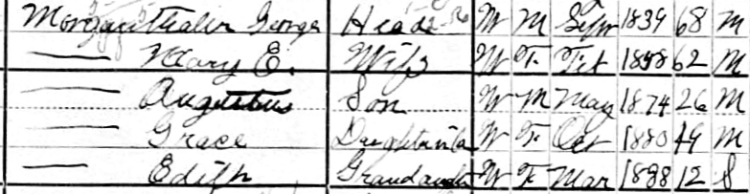 Morganthaler George Head W M Sept 1839 68 M
— Mary E. Wife W F Feb 1838 62 M
— Augustus Son W M May 1874 26 M
— Grace Daughterinla W F Oct 1880 19 M
— Edith Grandaughter W F Mar 1898 12 S